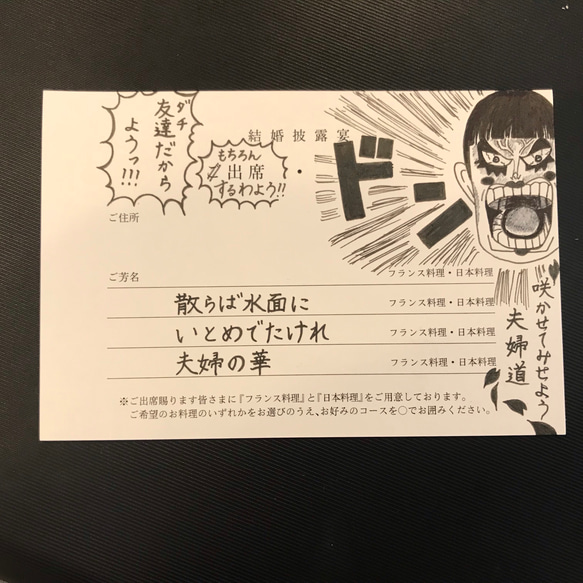 結婚披露宴
ダチ
友達だから
ようッ!!!
もちろん
出席
するわよう!!
・
ドーン
ご住所
ご芳名
フランス料理・日本料理
散らば水面に
フランス料理・日本料理
いとめでたけれ
フランス料理・日本料理
夫婦の華
フランス料理・日本料理
咲かせてみせよう
夫婦道
※ご出席賜ります皆さまに『フランス料理』と『日本料理』をご用意しております。
ご希望のお料理のいずれかをお選びのうえ、お好みのコースを○でお囲みください。